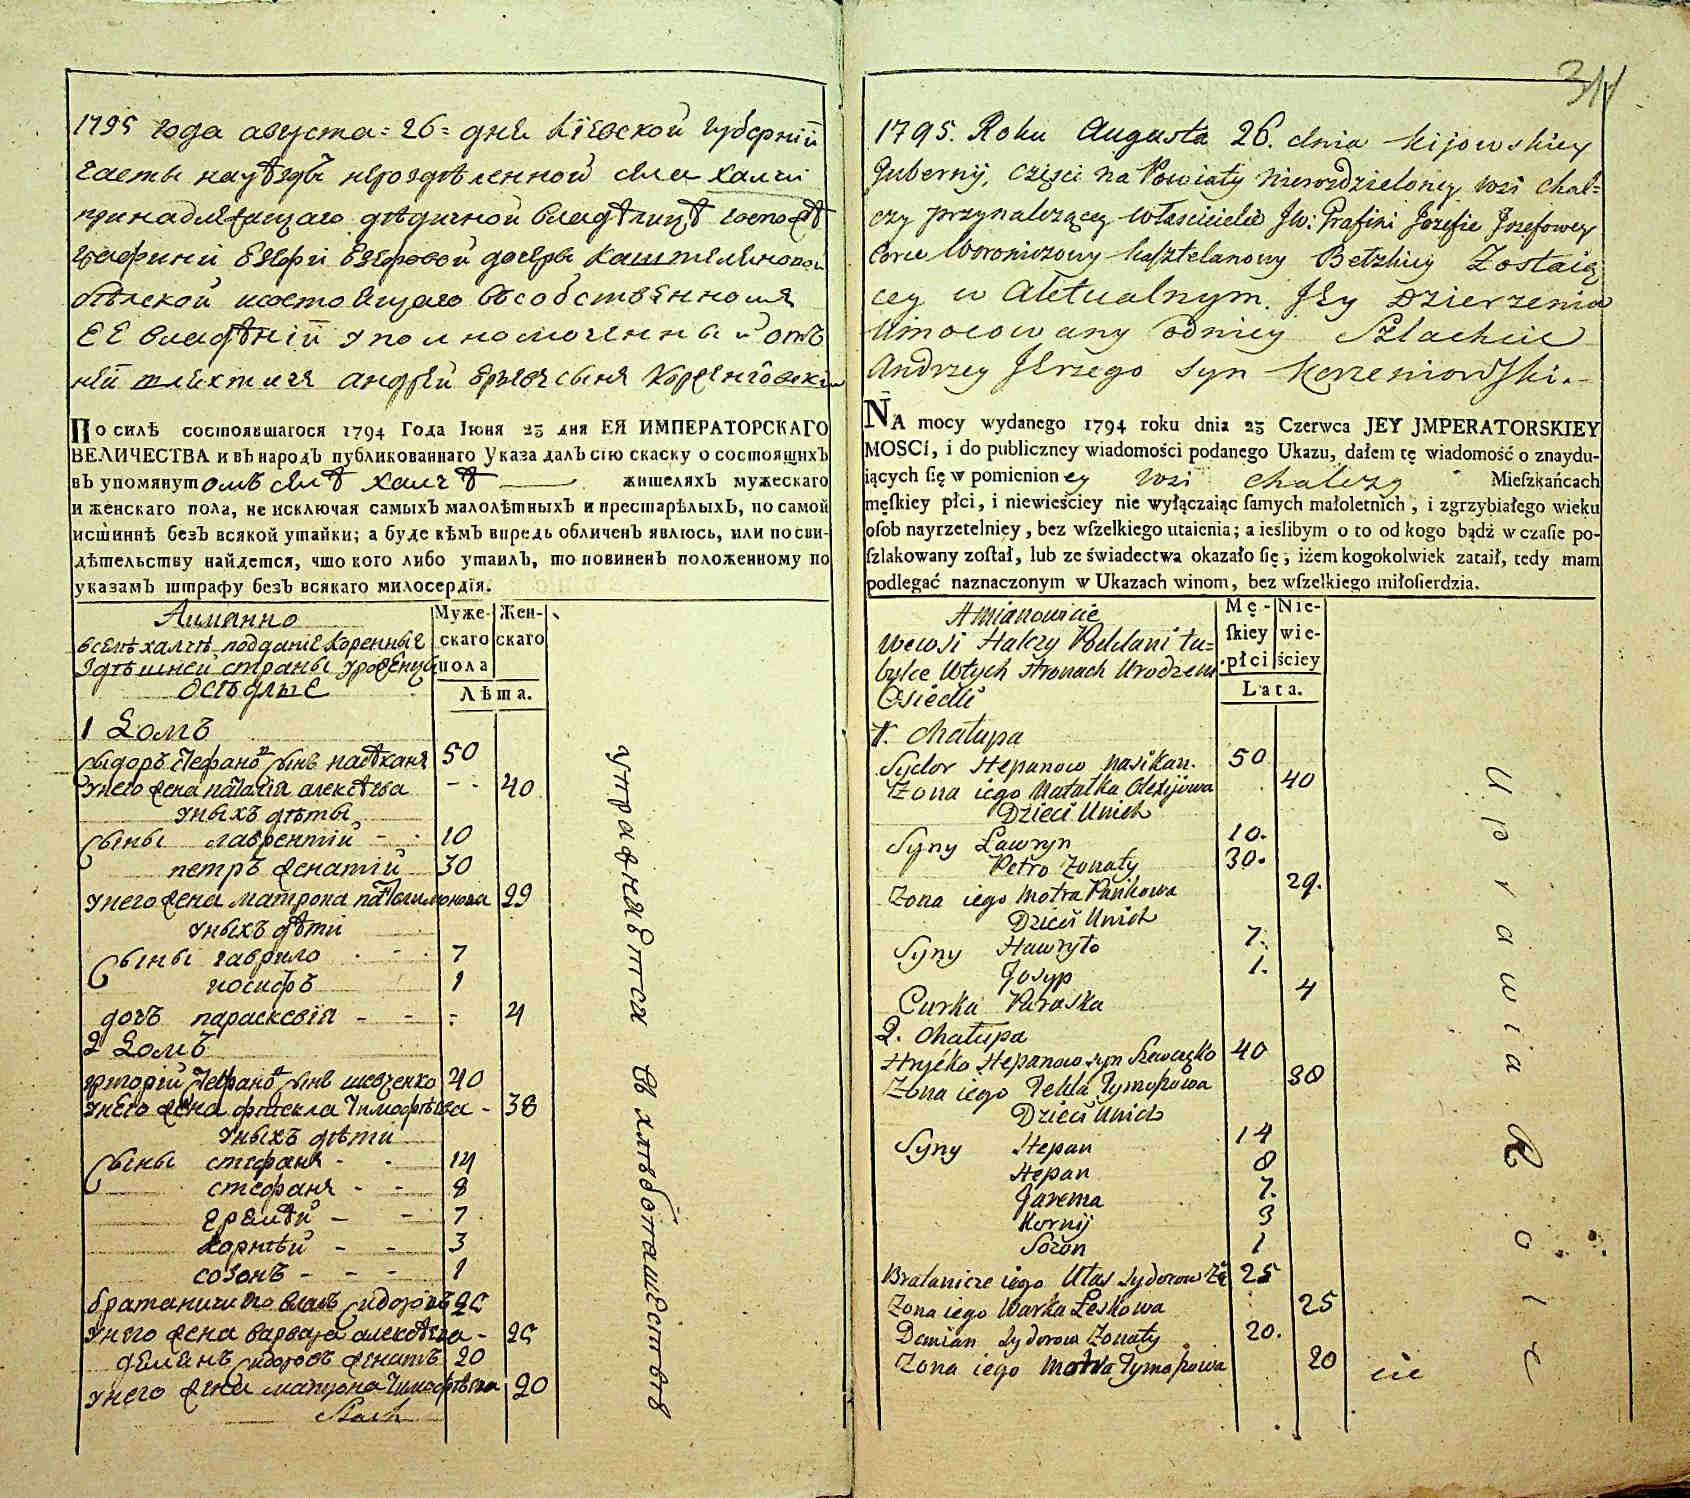 1795 года августа = 26 = дня Кіевской губерніи
части науѣзды нероздѣленной села Халчи
принадлежащаго дѣдичной владѣлицѣ
графини Езефи Езефовой дочери Каштеляновой
бѣлской и состоящаго въ собственномъ
ЕЕ владѣніи уполномоченный отъ
ней шляхтичъ андрей сына
По силѣ состоявшагося 1794 Года Іюня 23 дня ЕЯ ИМПЕРАТОРСКАГО
ВЕЛИЧЕСТВА и въ народЪ публикованнаго Указа далЪ сію скаску о состоящихЪ
вЪ упомянутомъ селѣ халчѣ жителяхЪ мужескаго
и женскаго пола, не исключая самыхЪ малолѣтныхЪ и престарѣлыхЪ, по самой
истиннѣ безЪ всякой утайки; а буде кѣмЪ впредь обличенЪ явлюсь, или по сви-
дѣтельству найдется, что кого либо утаилЪ, то повиненЪ положенному по
указамЪ штрафу безЪ всякаго милосердія.
Аимянно
всемъ халчѣ подданіе коренные
здѣшней страны уроженцы
осѣдлые
Муже-
скаго
пола
Жен-
скаго
Лѣта.
1 Домъ
Сыдоръ Стефановъ сынъ насѣканъ 50
у него жена наталія алексѣева - - 40
у ныхъ дѣты
Сыны лаврентій - - 10
петръ женатій 30
у него жена матрона 29
у ныхъ дѣти
Сыны гаврило - - - 7
иосифъ 1
дочъ параскевія - - - 4
2 Домъ
григорій Стефановъ сынъ шевченко 40
у него жена фтекла тимофѣева - 38
у ныхъ дѣти
Сыны стефанъ - - 14
стефанъ - - 8
еремѣй - - 7
корнѣй - - 3
созонъ - - - 1
братаничи его власъ Сидоровъ 25
у него жена варвара алексѣева - 25
демянъ Сидоровъ женатъ 20
у него жена матрона тимофѣева 20
Stach
упражняется въ хлѣбопашествѣ
1795. Roku Augusta 26. dnia Kijowskiey
Guberny, części na Powiaty nierozdzieloney wsi Chal=
czy przynalezącey własciciełce Jw: Grafini Jozefie Jozefowey
Corce Woroniczowy Kasztelanowy Bełzkiey Zostaią
cey w Aktualnym Jey Dzierzeniu
Umocowany odniey Szlachcic
Andrzey Jerzego syn Korzeniowski.-
NA mocy wydanego 1794 roku dnia 23 Czerwca JEY JMPERATORSKIEY
MOSCI, i do publiczney wiadomości podanego Ukazu, dałem tę wiadomość o znaydu-
iących się w pomienioney wsi chalczy Mieszkańcach
męskiey płci, i niewieściey nie wyłączaiąc samych małoletnich, i zgrzybiałego wieku
osob nayrzetelniey, bez wszelkiego utaienia; a ieślibym o to od kogo bądź w czasie po-
szlakowany został, lub ze świadectwa okazało się, iżem kogokolwiek zataił, tedy mam
podlegać naznaczonym w Ukazach winom, bez wszelkiego miłosierdzia.
A mianowicie
wewsi Halczy Poddani tu=
bylce wtych stronach Urodzeni
Osiedli
Mę-
skiey
płci
Nie-
wie-
ściey
Lata.
1. Chałupa
Sydor Stepanow nasikan. 50
Zona iego Natalka Olexijowa 40
Dzieci Unich
Syny Ławryn 10.
Petro Zonaty 30.
Zona iego Motra 29.
Dzieci Unich
Syny Hawryło 7.
Josyp 1.
Curka Paraska 4
2. Chałupa
Hryćko Stepanow syn Szewczęko 40
Zona iego Tekla Tymofiowa 38
Dzieci Unich
Syny Stepan 14
Stepan 8
Jarema 7.
Kornij 3
Sozon 1
Bratanicze iego Ułas Sydorow Żo 25
Zona iego Warka Leskowa 25
Demian Sydorow Zonaty 20.
Zona iego Motra Tymofiowa 20
Uprawia Role
311